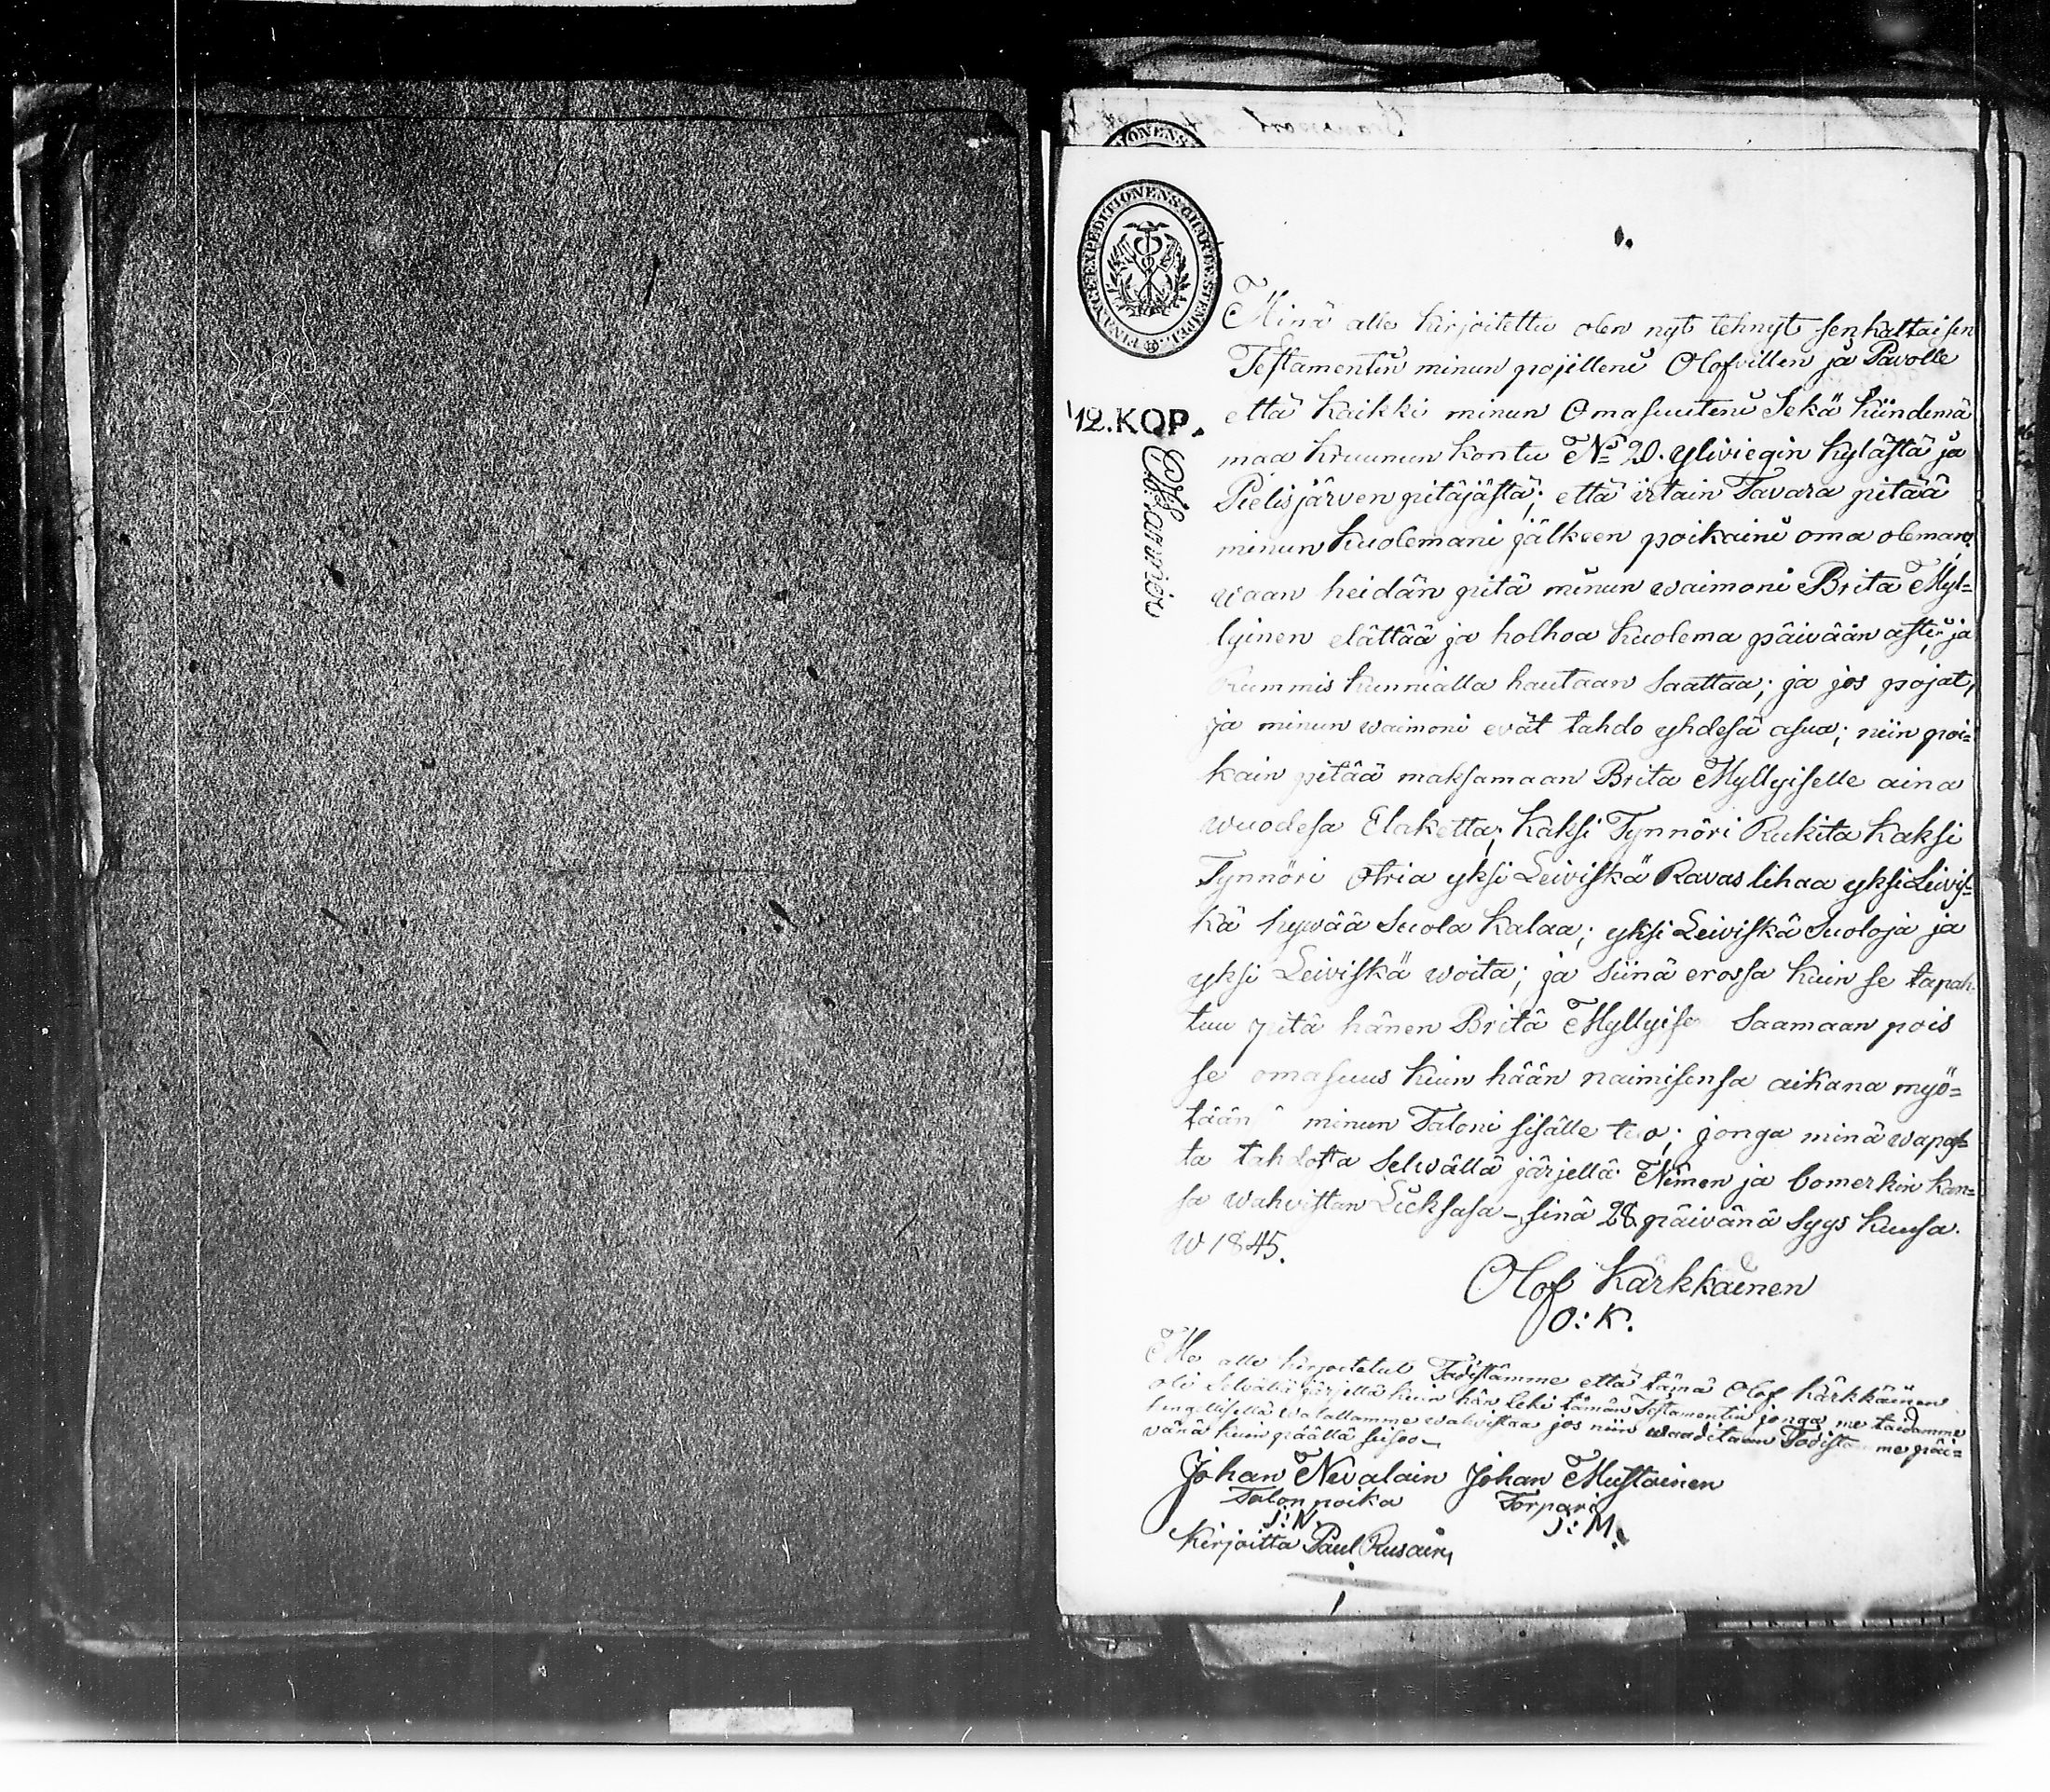 FINANCE-EXPEDITIONENS CHARTÆ STEMPEL.
12. KOP.
Minä alle kirjoitettu olen nyt tehnyt senkaltaisen
Testamentin minun pojilleni Olofvillen ja Pavolle
että kaikki minun Omasuuteni Sekä kiindemä
maa kruunun kontu No 20. yliviegin kylästä ja
Pielisjärven pitäjästä; että irtain Tavara pitää
minun kuolemani jälkeen poikaini oma oleman,
vaan heidän pitä minun waimoni Brita Myl=
lyinen elättää ja holhoa kuolema päivään asti, ja
kummis kunnialla hautaan Saattaa; ja jos pojat,
ja minun waimoni evät tahdo yhdesä asua; niin poi=
kain pitää maksamaan Brita Myllyiselle aina
wuodesa Elaketta; kaksi Tynnöri Rukita kaksi
Tynnöri Otria yksi Leiviskä Ravas lihaa yksi Leivis=
kä hywää Suola kalaa; yksi Leiviskä Suoloja ja
yksi Leiviskä woita; ja siinä erossa kuin se tapah=
tuu pitä hänen Britä Myllyise Saamaan pois
se omasuus kuin hään naimisensa aikana myö=
tään minun Taloni sisälle tuo; jonga minä wapas=
ta tahdosta Selwällä järjellä Nimen ja bomerkin kan=
sa wahvistan Lieksasa – sinä 28. päivänä Syys kuusa.
W 1845.
Olof Kärkkäinen
O: K.
Me alle kirjoitetut Todistämme että tämä Olof kärkkäinen
oli Selvällä järjellä kuin hän teki tämän Testamentin jonga me taidamme
hengellisellä walallamme wahvistaa jos niin waaditaan Todistamme päi=
vänä kuin päällä seisoo –
Johan Nevalain Johan Mustoinen
Talon poika Torpari
J: N. J: M.
Kirjoitta Paul Rusain